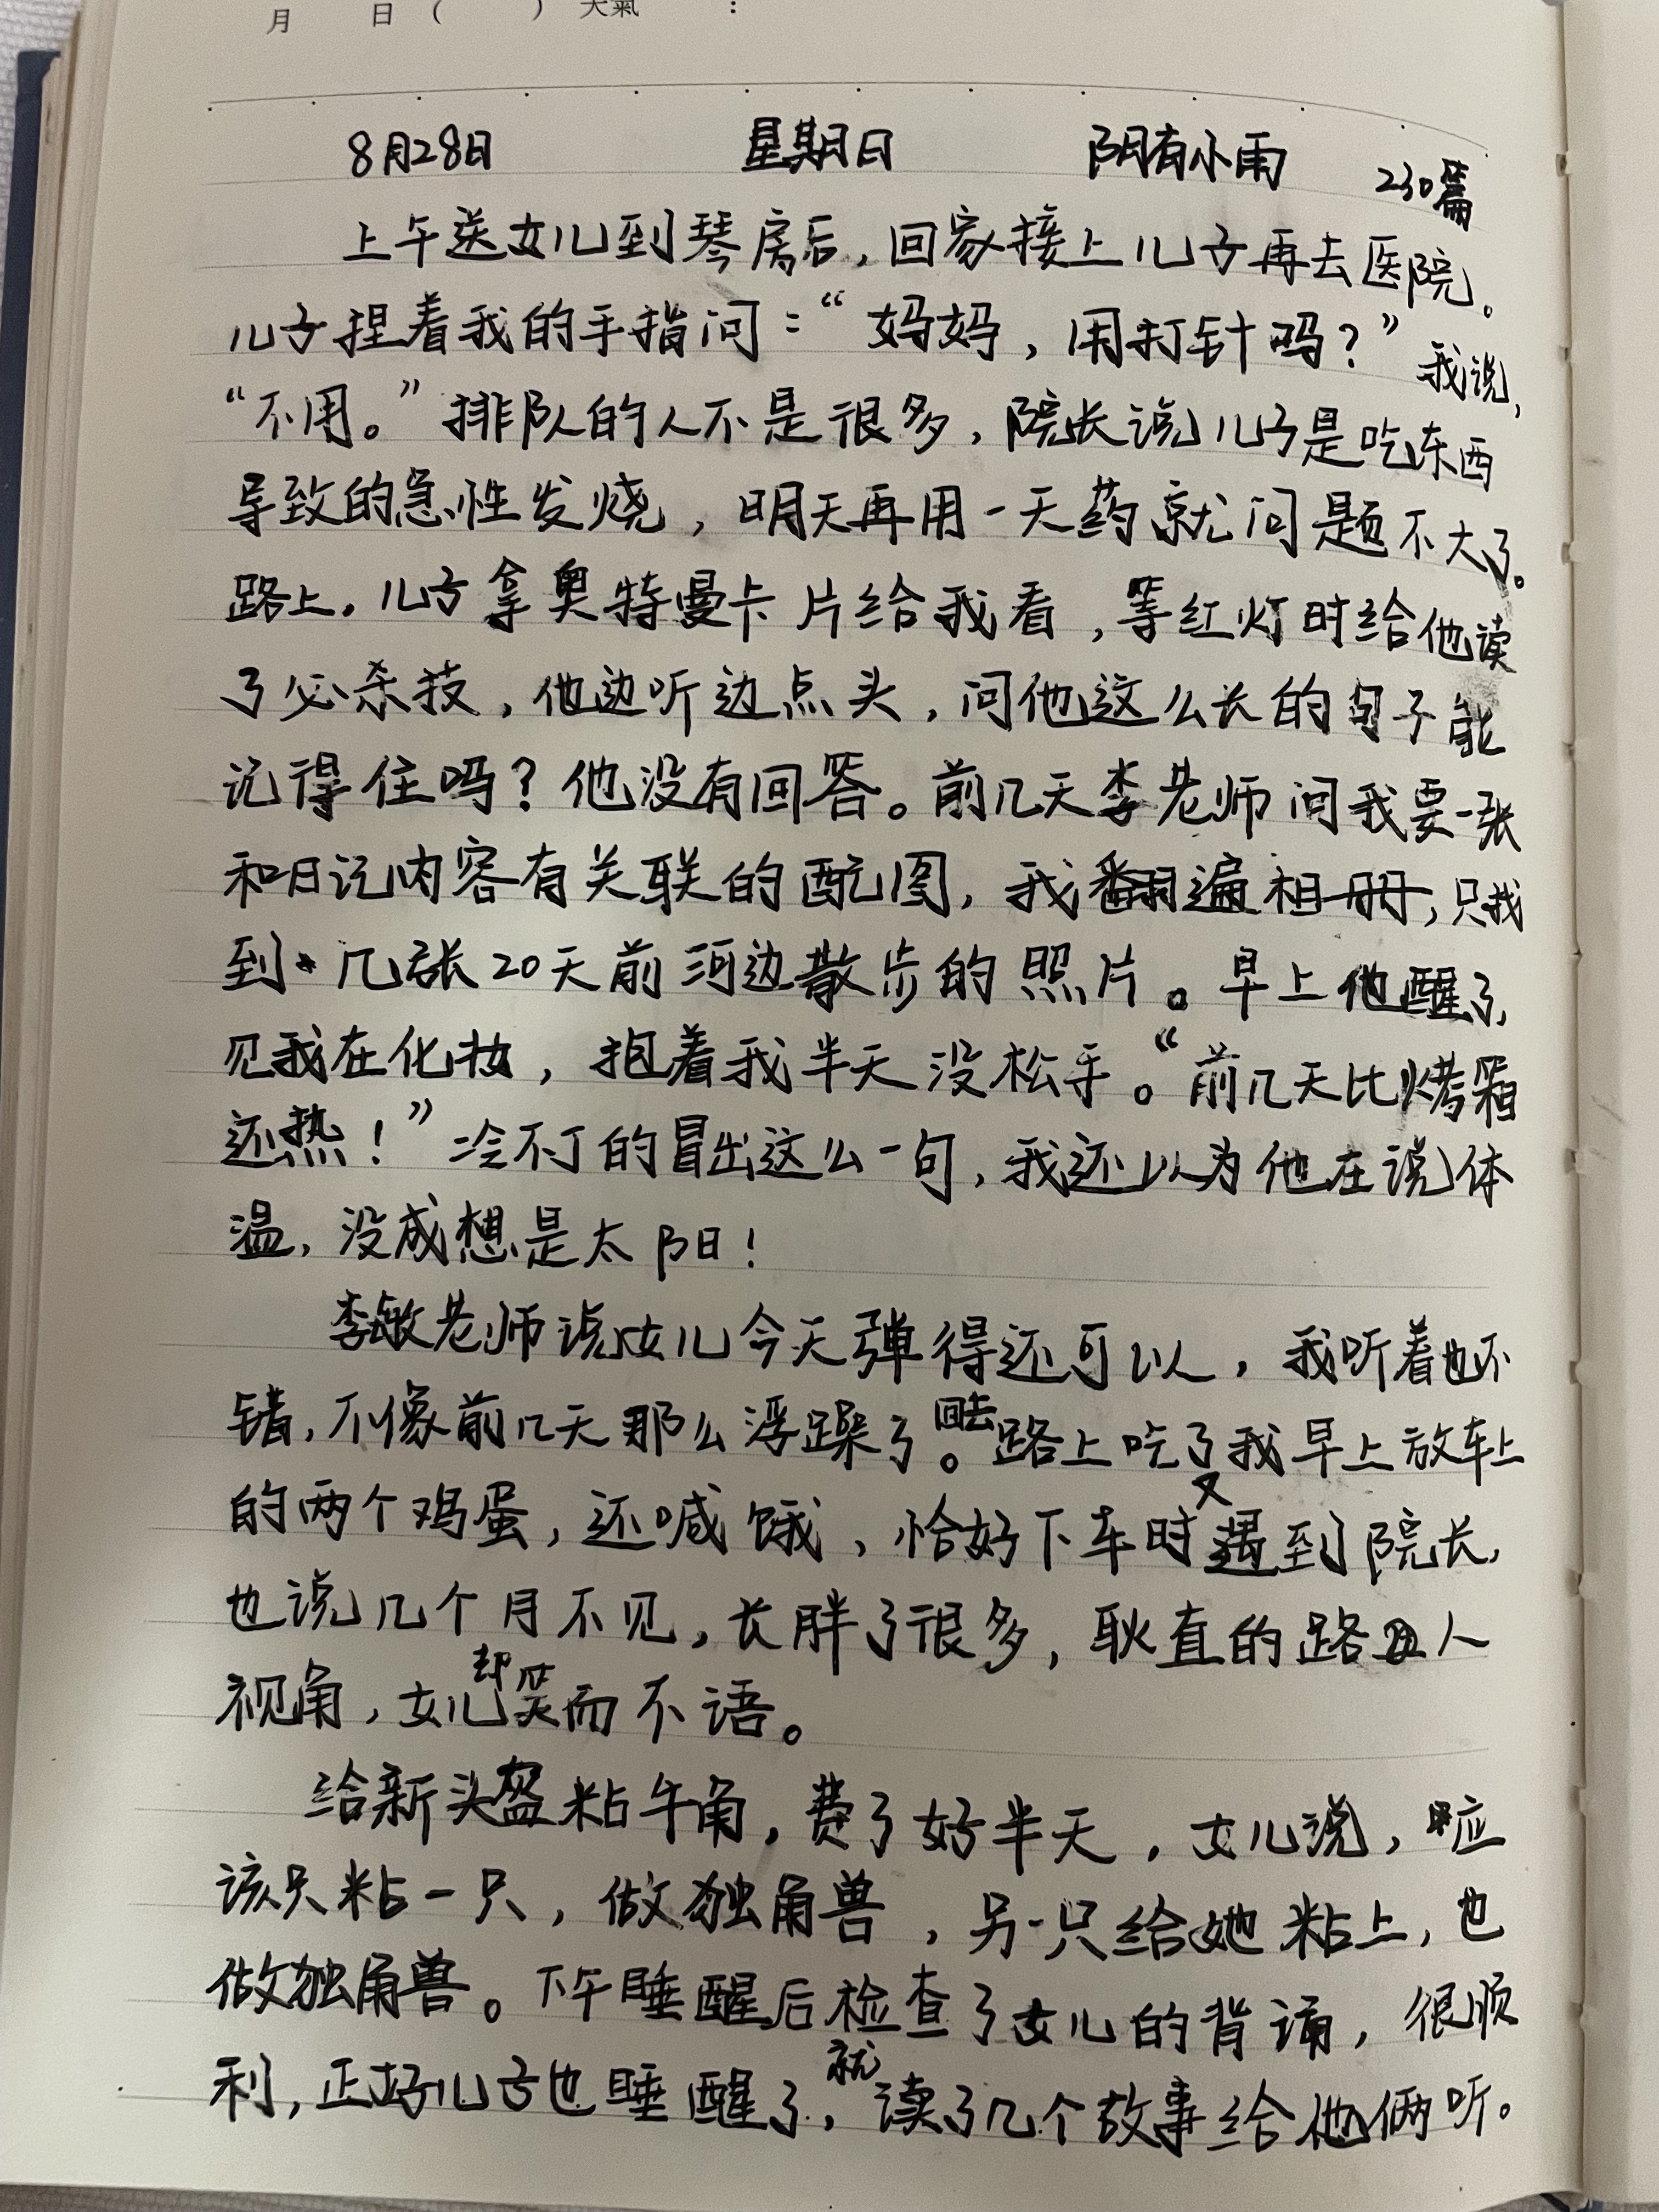 月 日 ( ) 天氣 :
8月28日 星期日 阴有小雨 230篇
上午送女儿到琴房后，回家接上儿子再去医院。
儿子捏着我的手指问：“妈妈，用打针吗？”我说，
“不用。”排队的人不是很多，院长说儿子是吃东西
导致的急性发烧，明天再用一天药就问题不大了。
路上，儿子拿奥特曼卡片给我看，等红灯时给他读
了必杀技，他边听边点头，问他这么长的句子能
记得住吗？他没有回答。前几天李老师问我要一张
和日记内容有关联的配图，我翻遍相册，只找
到几张20天前河边散步的照片。早上他醒了，
见我在化妆，抱着我半天没松手。“前几天比烤箱
还热！”冷不丁的冒出这么一句，我还以为他在说体
温，没成想是太阳！
李敏老师说女儿今天弹得还可以，我听着也不
错，不像前几天那么浮躁了。回去路上吃了我早上放车上
的两个鸡蛋，还喊饿，恰好下车时又遇到院长，
也说几个月不见，长胖了很多，耿直的路人
视角，女儿却笑而不语。
给新头盔粘牛角，费了好半天，女儿说，应
该只粘一只，做独角兽，另一只给她粘上，也
做独角兽。下午睡醒后检查了女儿的背诵，很顺
利，正好儿子也睡醒了，就读了几个故事给他俩听。